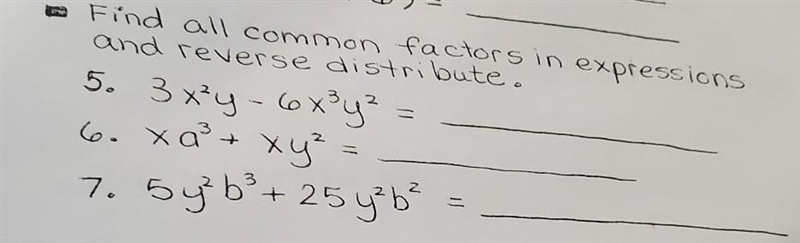 Find all common factors in expressions
and reverse distribute.
5. 3x²y - 6x³y² =
6. xa³ + xy² =
7. 5y²b³ + 25y²b² =